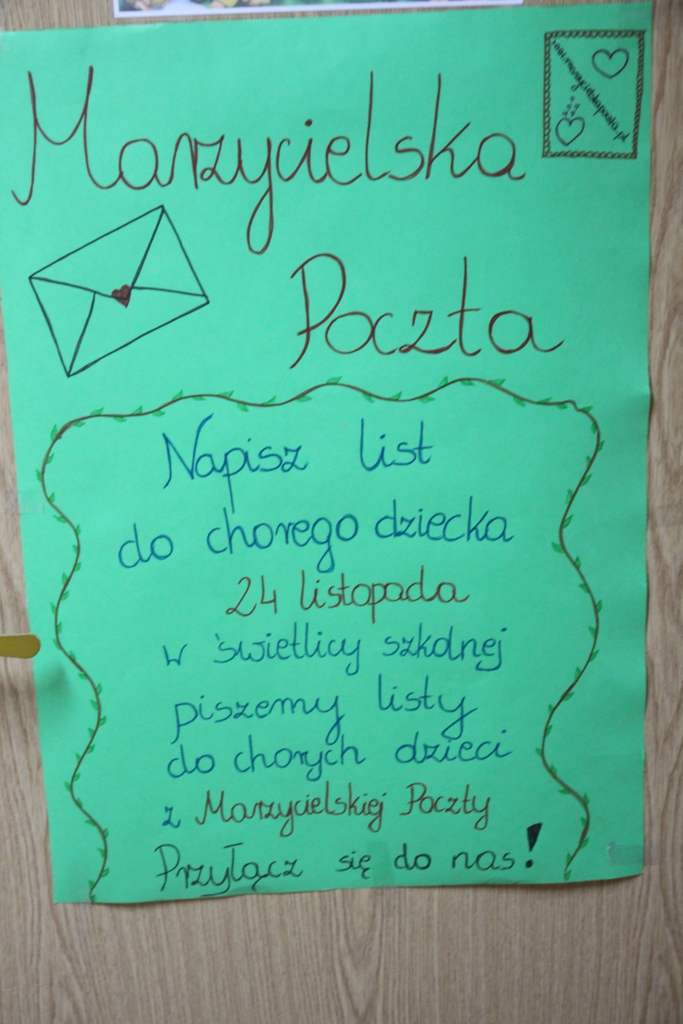 Marzycielska
www.marzycielskapoczta.pl
Poczta
Napisz list
do chorego dziecka
24 listopada
w świetlicy szkolnej
piszemy listy
do chorych dzieci
z Marzycielskiej Poczty
Przyłącz się do nas!